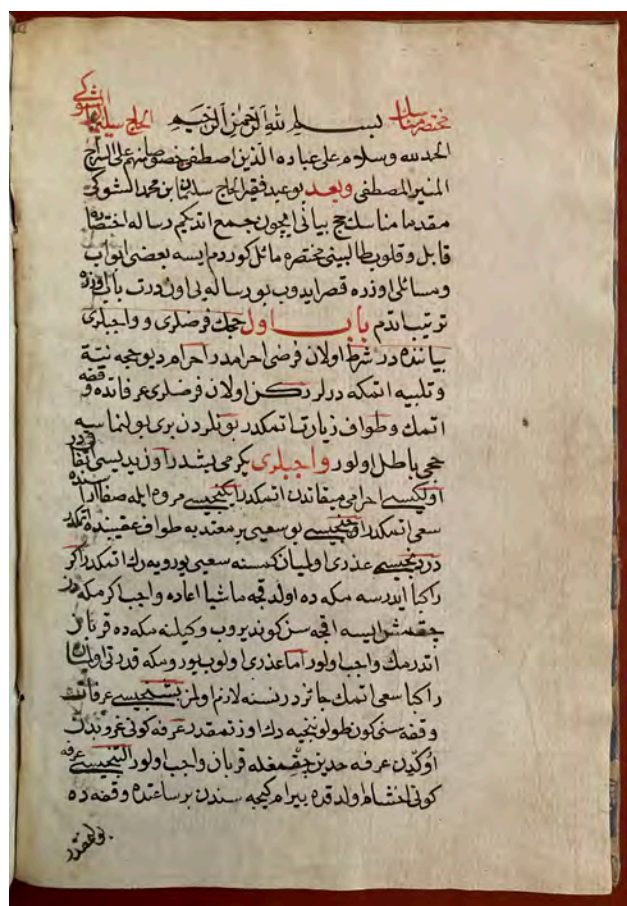 مختصر مناسك بسم الله الرحمن الرحيم الحاج سليمان المشوكي
الحمد لله وسلام على عباده الذين اصطفى خصوصا منهم على السراج
المنير المصطفى وبعد بو عبد فقير الحاج سليمان بن محمد المشوكي
مقدما مناسك حج بيانى ايچون جمع اتديكم رساله اختصاره
قابل و قلوب طالبينى مختصره مائل كوردم ايسه بعضى ابواب
ومسائلى اوزره قصر ايدوب بو رساله يى اون درت باب اوزره
ترتيب اتدم باب اول حجك فرضلرى و واجبلرى
بياننده در شرط اولان فرضى احرامدر احرام ديو حجه نيته
و تلبيه اتمكه درلر ركن اولان فرضلرى عرفاتده وقفه
اتمك و طواف زيارت اتمكدر بونلردن برى بولنماسه
حجى باطل اولور واجبلرى يكرمى بشدر اون يديسى اتفاقى در
اولكيسى احرامى ميقاتدن اتمكدر ايكنجيسى مروه ايله صفا اراسنده
سعى اتمكدر اوچنجيسى بو سعيى بر معتد به طواف عقيبنده اتمكدر
دردنجيسى عذرى اولميان كمسنه سعيى يورويه رك اتمكدر اكر
راكبا ايدرسه مكه ده اولدقجه ماشيا اعاده واجب اكر مكه دن
چقمش ايسه اقچه سن كوندروب وكيلنه مكه ده قربان
اتدرمك واجب اولور اما عذرى اولوب يورومكه قدرتى اولمسا
راكبا سعى اتمك جائزدر نسنه لازم اولمز بشنجيسى عرفات
وقفه سنى كون طولوننجيه دك اوزتمقدر عرفه كونى غروبدن
اوكدين عرفه حدين چقمغله قربان واجب اولور التنجيسى عرفه
كونى اخشام اولدقده بيرام كيجه سندن بر ساعتده وقفه ده
بولنمقدر